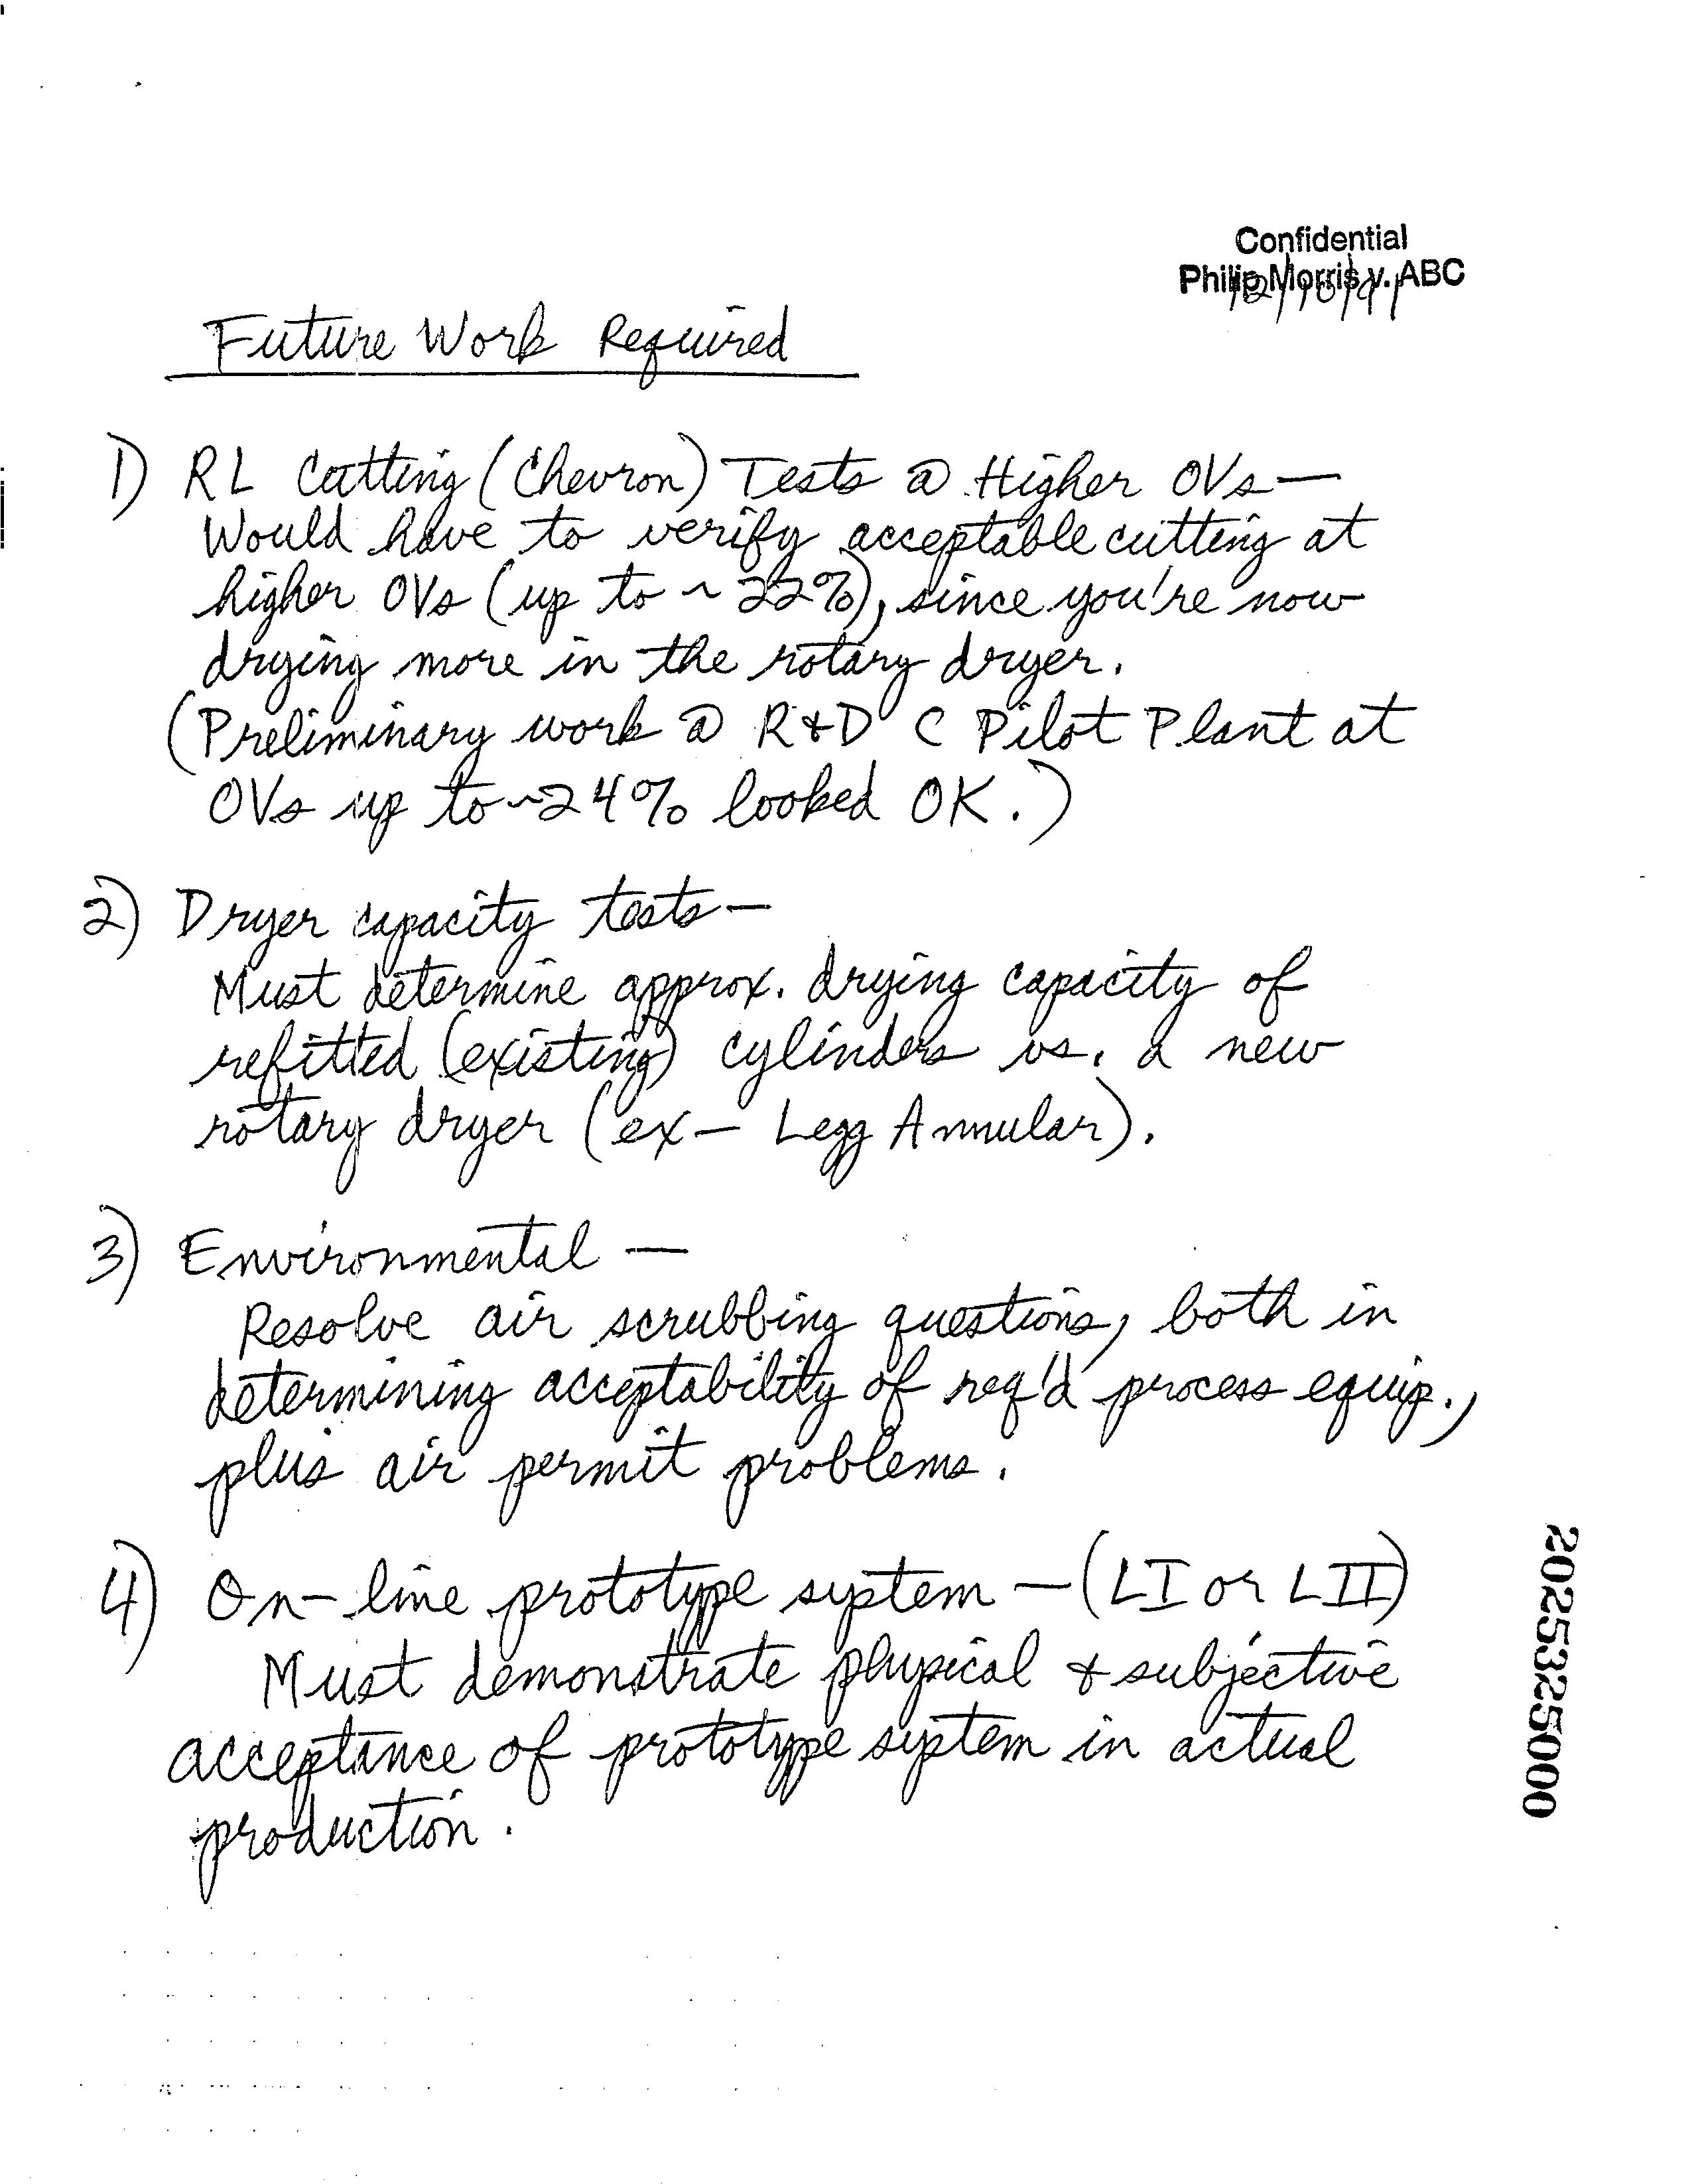 Confidential
Philip Morris v. ABC
12/10/91
Future Work Required
1) RL Cutting (Chevron) Tests @ Higher OVs—
Would have to verify acceptable cutting at
higher OVs (up to ~ 22%), since you're now
drying more in the rotary dryer.
(Preliminary work @ R+D C Pilot Plant at
OVs up to ~24% looked OK.)
2) Dryer capacity tests—
Must determine approx. drying capacity of
refitted (existing) cylinders vs. a new
rotary dryer (ex— Legg Annular).
3) Environmental —
Resolve air scrubbing questions, both in
determining acceptability of req'd process equip.,
plus air permit problems.
4) On-line prototype system — (LI or LII)
Must demonstrate physical + subjective
acceptance of prototype system in actual
production.
2025325000